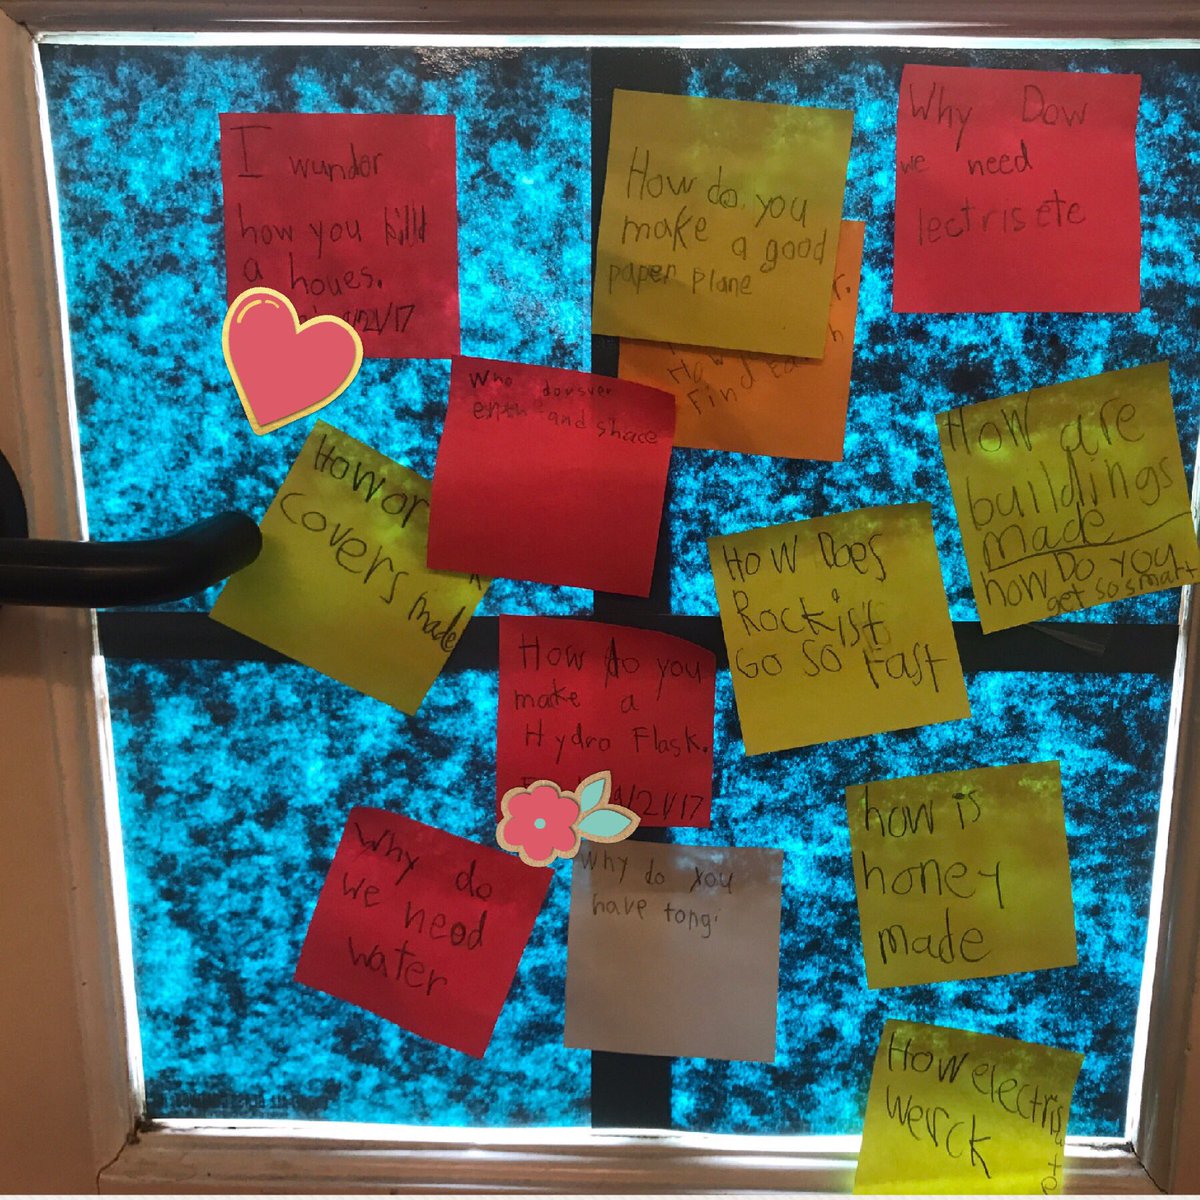 I wunder
how you billd
a houes.
/21/17
How do you
make a good
paper plane
How
Find
Why Dow
we need
lectrisete
and shace
How or
covers made
How are
buildings
made
how Do you
get so smart
How Does
Rockist
Go so Fast
How do you
make a
Hydro Flask.
/21/17
Why do
we need
water
Why do you
have tongi
how is
honey
made
How electris
weirck